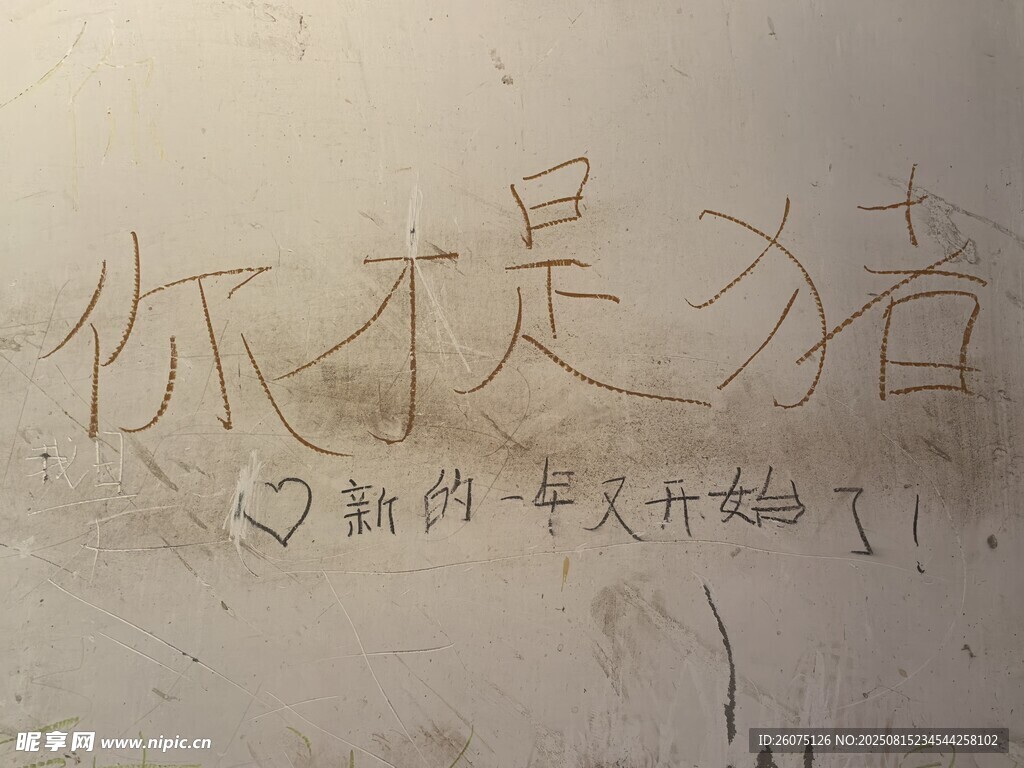 你才是猪
我
♡新的一年又开始了!
昵享网 www.nipic.cn
ID:26075126 NO:20250815234544258102